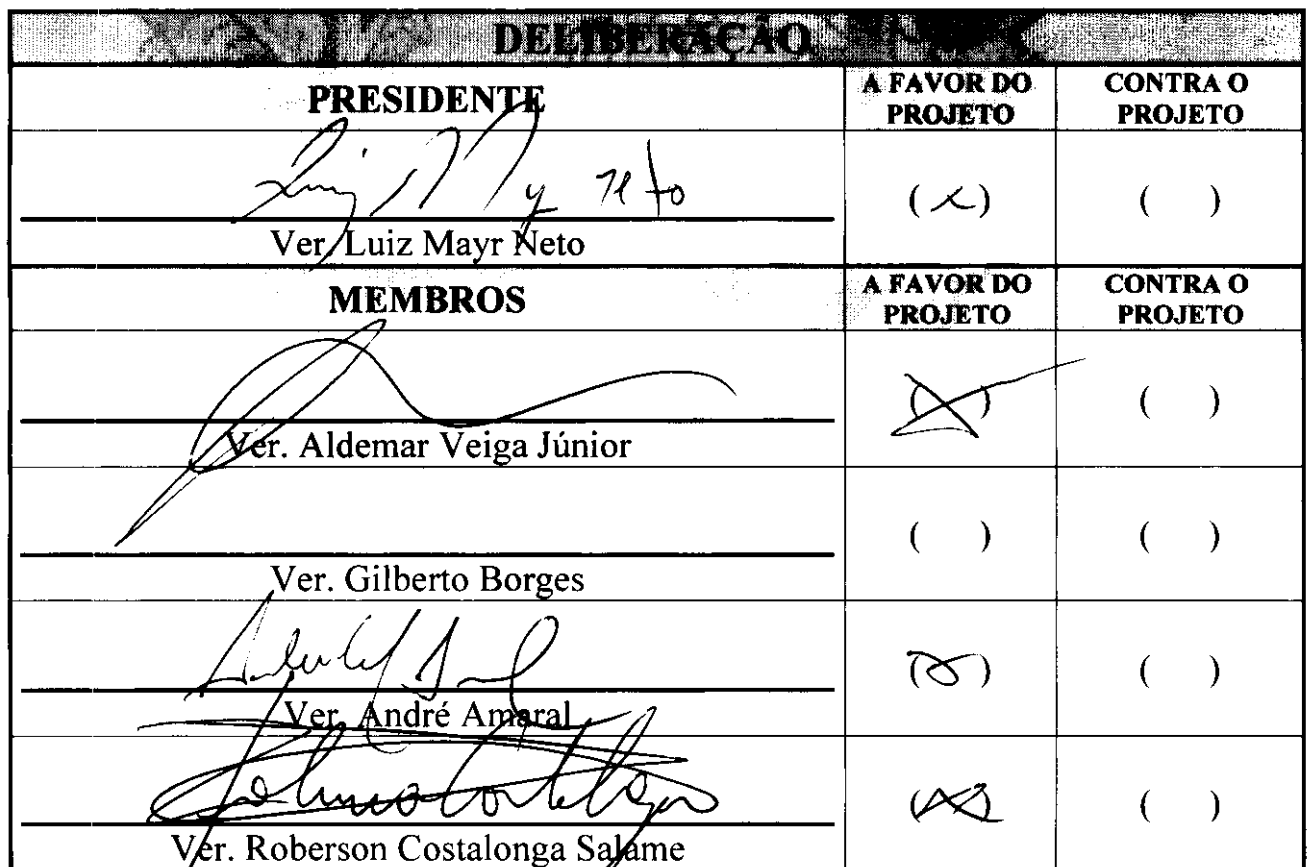 DELIBERAÇÃO
PRESIDENTE A FAVOR DO PROJETO CONTRA O PROJETO
Luiz M y Neto (x) ( )
Ver. Luiz Mayr Neto
MEMBROS A FAVOR DO PROJETO CONTRA O PROJETO
(X) ( )
Ver. Aldemar Veiga Júnior
( ) ( )
Ver. Gilberto Borges
(X) ( )
Ver. André Amaral
(X) ( )
Ver. Roberson Costalonga Salame